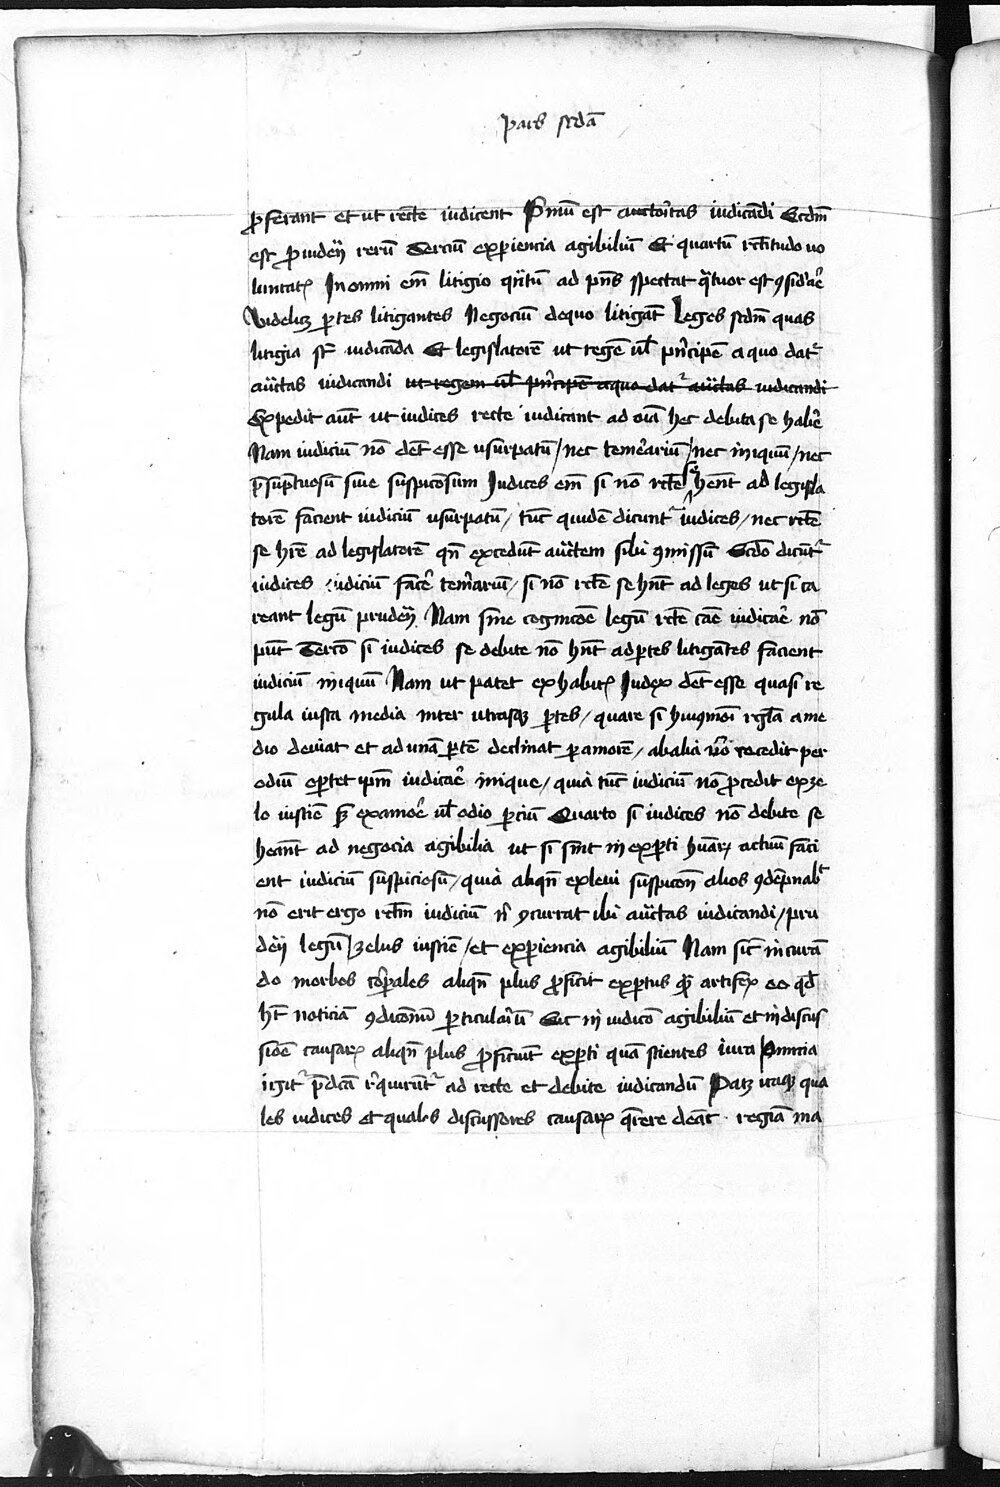 Pars scdā
ꝓferant et ut recte iudicent Pͥmū est auctoritas iudicādi Scdm̄
est prudēȷ rerū Terciū experiencia agibiliū Et quartū rc̄titudo uo
luntatꝭ In omni em̄ litigio qn̄tū ad pn̄s spectat qͣtuor est ꝯsid'aͬe
Videlicꝫ ꝑtes litigantes Negociū dequo litigāt Leges scdm̄ quas
litigia st̄ iudicāda Et legislatorē ut regē ul̄ pͥncipē a quo datᷣ
auc̄tas iudicandi ut regem ul̄ pͥncipē a quo datᷣ auc̄tas iudicandi
Expedit aūt ut iudices recte iudicant ad oīa hec debita se habēr
Nam iudiciū nō det̄ esse usurpatū / nec temerariū / nec iniquū / nec
p̄sūptuosū siue suspicosum Judices em̄ si nō rc̄te se hēnt ad legisla
torē facient iudiciū usurpatū / tūc quidē dicuntᷣ iudices / nec rc̄te
se hr̄e ad legislatorē qn̄ excedūt auc̄tem sibi ꝯmissū Scdō dicūtᷣ
iudices iudiciū facē temͬariū / si nō rc̄te se hn̄t ad leges ut si ca
reant legū prudēȷ Nam sine cognicōe legū rc̄te cāe iudicāͬe nō
pn̄t Tercō si iudices se debite nō hn̄t ad ꝑtes litigātes facient
iudiciū iniquū Nam ut patet ex habitꝭ Judex det̄ esse quasi re
gula iusta media inter utrasqꝫ ꝑtes / quare si huiꝯmōi rgl̄a a me
dio deuiat et ad unā ꝑtē declinat ꝑ amorē / ab alia ūo recedit per
odiū oꝑtet ip̄m iudicāͬe inique / quia tūc iudiciū nō ꝓcedit ex ze
lo iusticie sꝫ ex amoͬe ul̄ odio ꝑciū Quarto si iudices nō debite se
heānt ad negocia agibilia ut si sint in exꝑti hūarꝝ actuū faci
ent iudiciū suspiciosū / quia aliqn̄ ex leui suspicōn alios ꝯdēpnabᵗ
nō erit ergo rc̄tm iudiciū n̄ ꝯcurrat ibi auc̄tas iudicandi / pru
dēȷ legū / zelus iusticie / et exꝑiencia agibiliū Nam sic̄ in curā
do morbos corꝑales aliqn̄ plus ꝓficit exꝑtus qͣꝫ artifex eo qd̄
hēt noticiā ꝯdicōnū ꝑticulariū Sic in iudicō agibiliū et in discus
sioē causarꝝ aliqn̄ plus ꝓficiūt exꝑti quā scientes iura Omnia
igitᷣ p̄dcā rͤquiruntᷣ ad recte et debite iudicandū Patꝫ itaqꝫ qua
les iudices et quales discussores causarꝝ qͣrere deāt · regiā ma